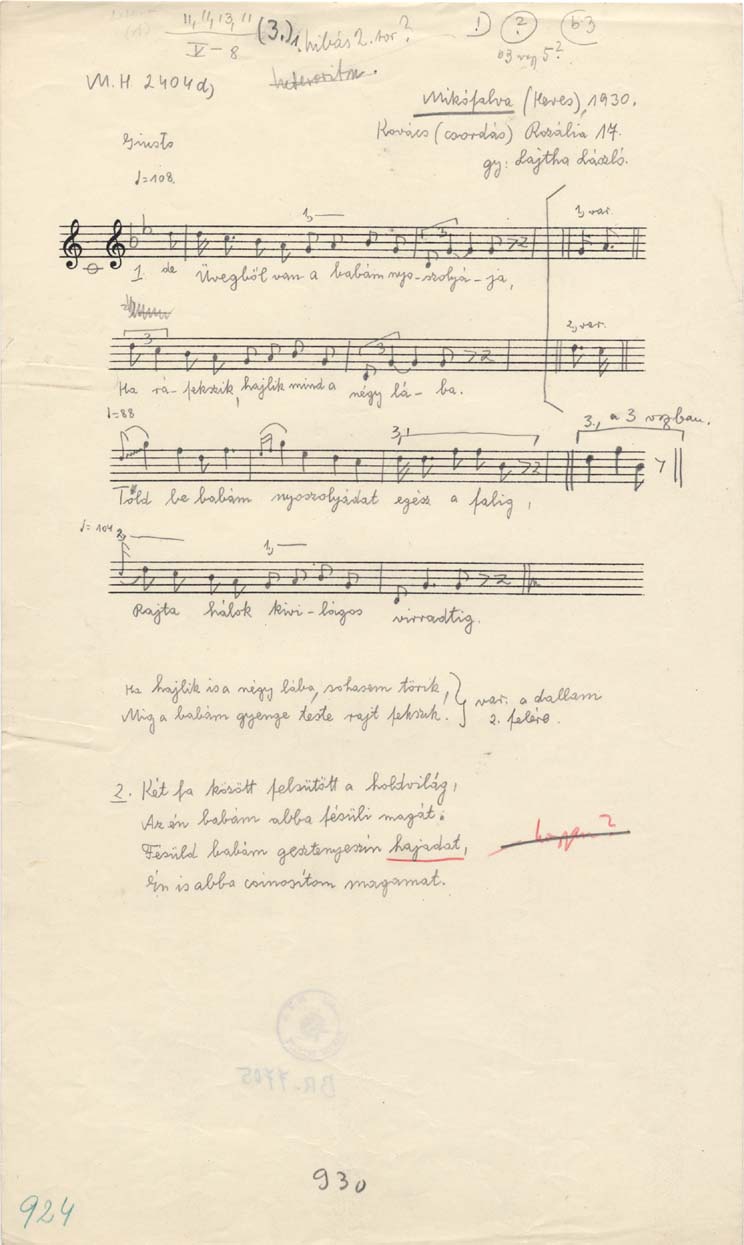 11, 11, 13, 11 (3.) 1. hibás 2. sor? 1) ? b3
V – 8 b3 vagy 5?
M.H. 2404 d) heteroritm.
Mikófalva (Heves), 1930.
Kovács (csordás) Rozália 17.
gy: Lajtha László.
Giusto
♩=108.
1, 1, var.
1. de Üvegből van a babám nyo-szolyá-ja,
3 2, var.
Ha rá-fekszik, hajlik mind a négy lá-ba.
♩=88 3, 3., a 3 vszban.
Told be babám nyoszolyádat egész a falig,
♩=104 2, 1,
Rajta hálok kivi-lágos virradtig.
Ha hajlik is a négy lába, sohasem törik,
Mig a babám gyenge teste rajt fekszik. } var. a dallam 2. felére.
2. Két fa között felsütött a holdvilág,
Az én babám abba fésüli magát.
Fésüld babám gesztenyeszin hajadat,
Én is abba csinositom magamat.
BR. 7705
930
924